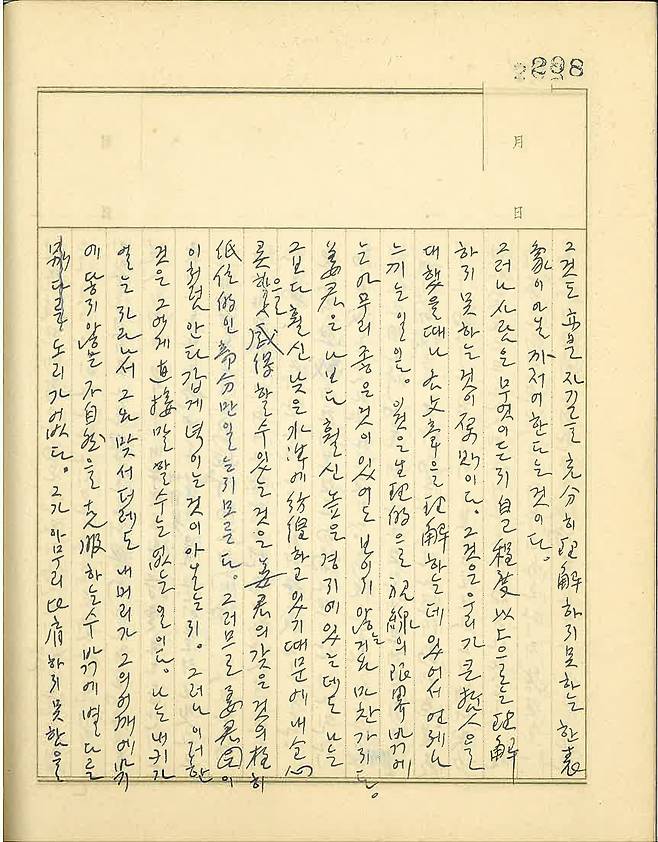 298
月
日
그것도 자기를 充分히 理解하지 못하는 한 表
象이 아닐까 저어한다는 것이다.
그러나 사람은 무엇이든지 自己 程度 以上으로는 理解
하지 못하는 것이 原則이다. 그것은 우리가 큰 哲人을
대했을 때나 大文章을 理解하는데 있어서 언제나
느끼는 일일. 이것은 生理的으로 視線의 限界 밖에
는 아무리 좋은 것이 있어도 보이지 않는 거와 마찬가지다.
姜君은 나보다 훨신 높은 경지에 있는데도 나는
그보다 훨신 낮은 水準에 彷徨하고 있기 때문에 내 全心
으로 感得할 수 있는 것은 姜君의 갖은 것의 極히
低位的인 部分만일는지 모른다. 그러므로 姜君
이처럼 안타깝게 녁이는 것이 아닐는지. 그러나 이러한
것은 그에게 直接 말할 수는 없는 일이다. 나는 내 키가
얼는 자라나서 그와 맞서더래도 내 머리가 그의 어깨에 밖
에 닿지 않는 不自然을 克服하는 수밖에 별다를
도리가 없다. 그가 아무리 比肩하지 못함을